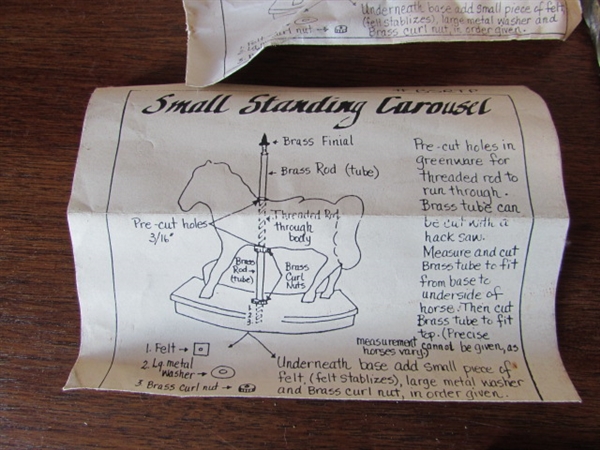 Underneath base add small piece of felt
(felt stablizes), large metal washer and
Brass curl nut, in order given.
curl nut →
Small Standing Carousel
Brass Finial
Brass Rod (tube)
Pre-cut holes
3/16"
Threaded Rod
through
body
Brass
Rod→
(tube)
Brass
Curl
Nuts
1
2
3
Pre-cut holes in
greenware for
threaded rod to
run through.
Brass tube can
be cut with a
hack saw.
Measure and cut
Brass tube to fit
from base to
underside of
horse. Then cut
Brass tube to fit
top. (Precise
measurement cannot be given, as
horses vary)
1. Felt →
2. Lg metal
washer →
3 Brass curl nut →
Underneath base add small piece of
felt, (felt stablizes), large metal washer
and Brass curl nut, in order given.